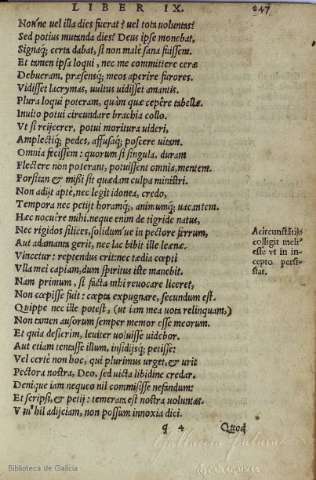 LIBER IX. 247
Nonne uel illa dies fuerat? uel tota uoluntas?
Sed potius mutanda dies? Deus ipse monebat,
Signaq́; certa dabat, si non male sana fuissem.
Et tamen ipsa loqui, nec me committere ceræ
Debueram, præsensq́; meos aperire furores.
Vidisset lacrymas, uultus uidisset amantis.
Plura loqui poteram, quàm quæ cepêre tabellæ.
Inuito potui circundare brachia collo.
Vt si reijcerer, potui moritura uideri,
Amplectiq́; pedes, affusaq́; poscere uitam.
Omnia fecissem: quorum si singula, duram
Flectere non poterant, potuissent omnia, mentem.
Forsitan & missi sit quædam culpa ministri.
Non adijt aptè, nec legit idonea, credo,
Tempora nec petijt horamq́;, animumq́; uacantem.
Hæc nocuêre mihi. neque enim de tigride natus,
Nec rigidos silices, solidum'ue in pectore ferrum,
Aut adamanta gerit, nec lac bibit ille leænæ.
Vincetur: repetendus erit: nec tædia cœpti
Vlla mei capiam, dum spiritus iste manebit.
Nam primum, si facta mihi reuocare liceret,
Non cœpisse fuit: cœpta expugnare, secundum est.
Quippe nec ille potest, (ut iam mea uota relinquam,)
Non tamen ausorum semper memor esse meorum.
Et quia desierim, leuiter uoluisse uidebor.
Aut etiam tentasse illum, insidijsq́; petisse:
Vel certè non hoc, qui plurimus urget, & urit
Pectora nostra, Deo, sed uicta libidine credar.
Deniq́ue iam nequeo nil commisisse nefandum:
Et scripsi, & petij: temerata est nostra uoluntas.
Vt nihil adijciam, non possum innoxia dici.
q 4 Quod
A circunstãtijs
colligit meli⁹
esse vt in in-
cepto persi-
stat.
Biblioteca de Galicia